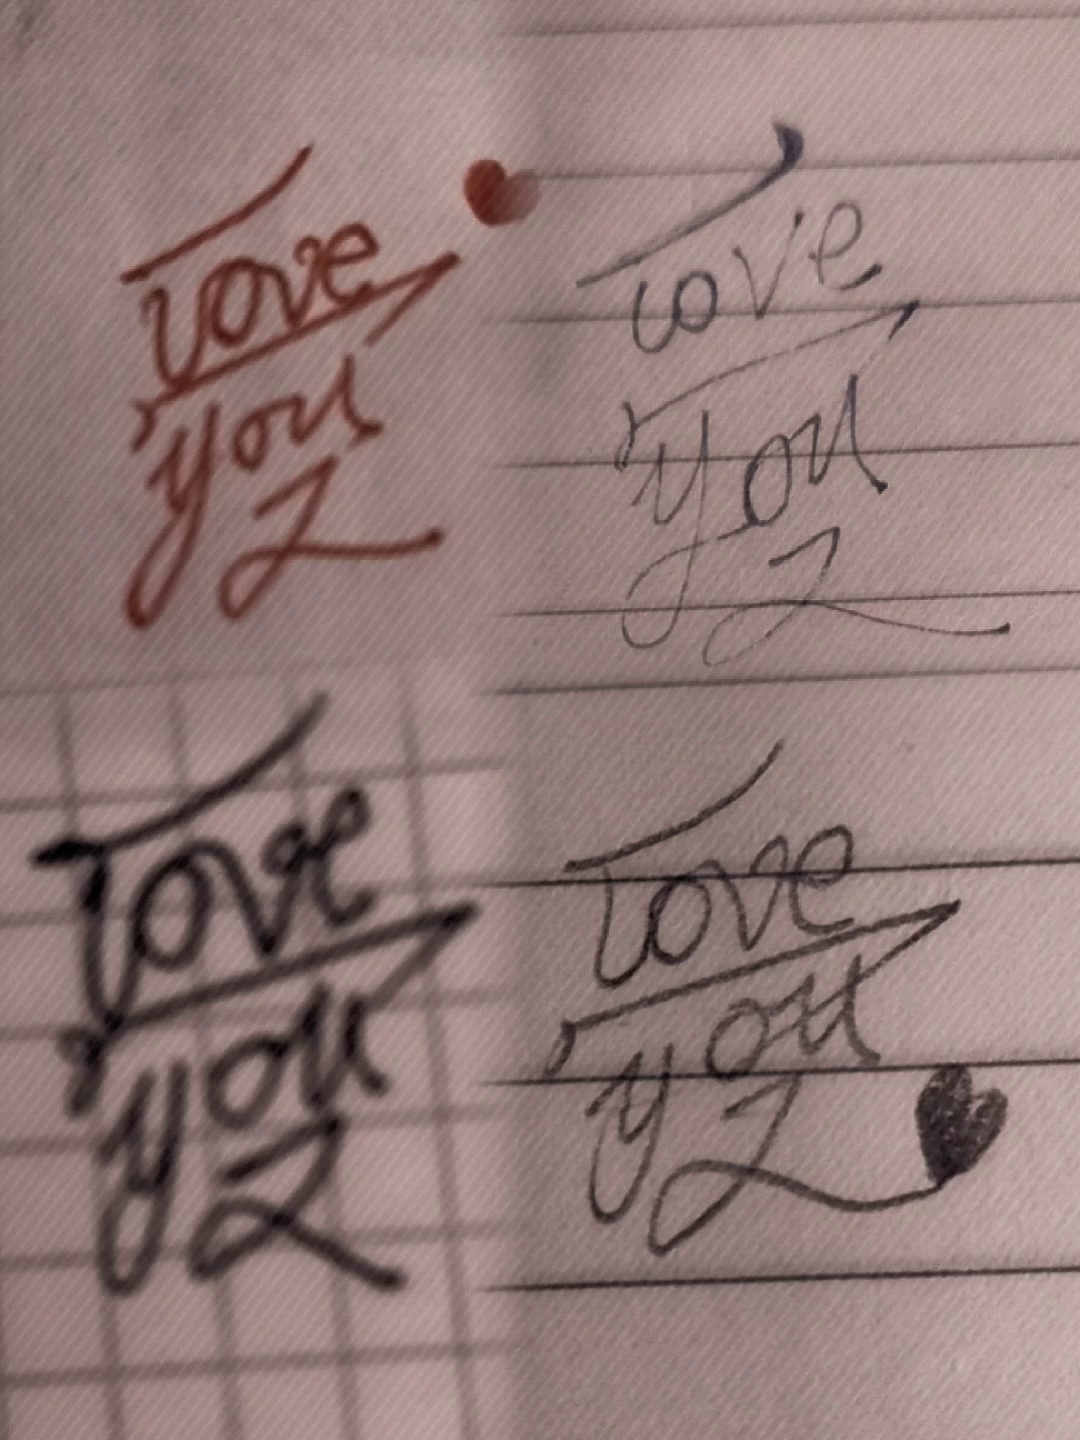 Love
you
Z
Love
you
Z
Love
you
Z
Love
you
Z